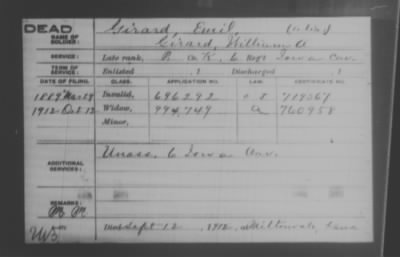 DEAD
NAME OF SOLDIER:
Girard, Emil, (alias)
Girard, William A
SERVICE:
Late rank, P. Co K, 6 Reg't Iowa Cav.
TERM OF SERVICE:
Enlisted , 1 Discharged , 1
DATE OF FILING. CLASS. APPLICATION NO. LAW. CERTIFICATE NO.
1889 Mar 29 Invalid, 696292 719067
1912 Oct 12 Widow, 994,747 a 760958
Minor,
ADDITIONAL SERVICES:
Unass. 6 Iowa Cav.
REMARKS:
Died Sept 12, 1912, at Miltonvale, Kans